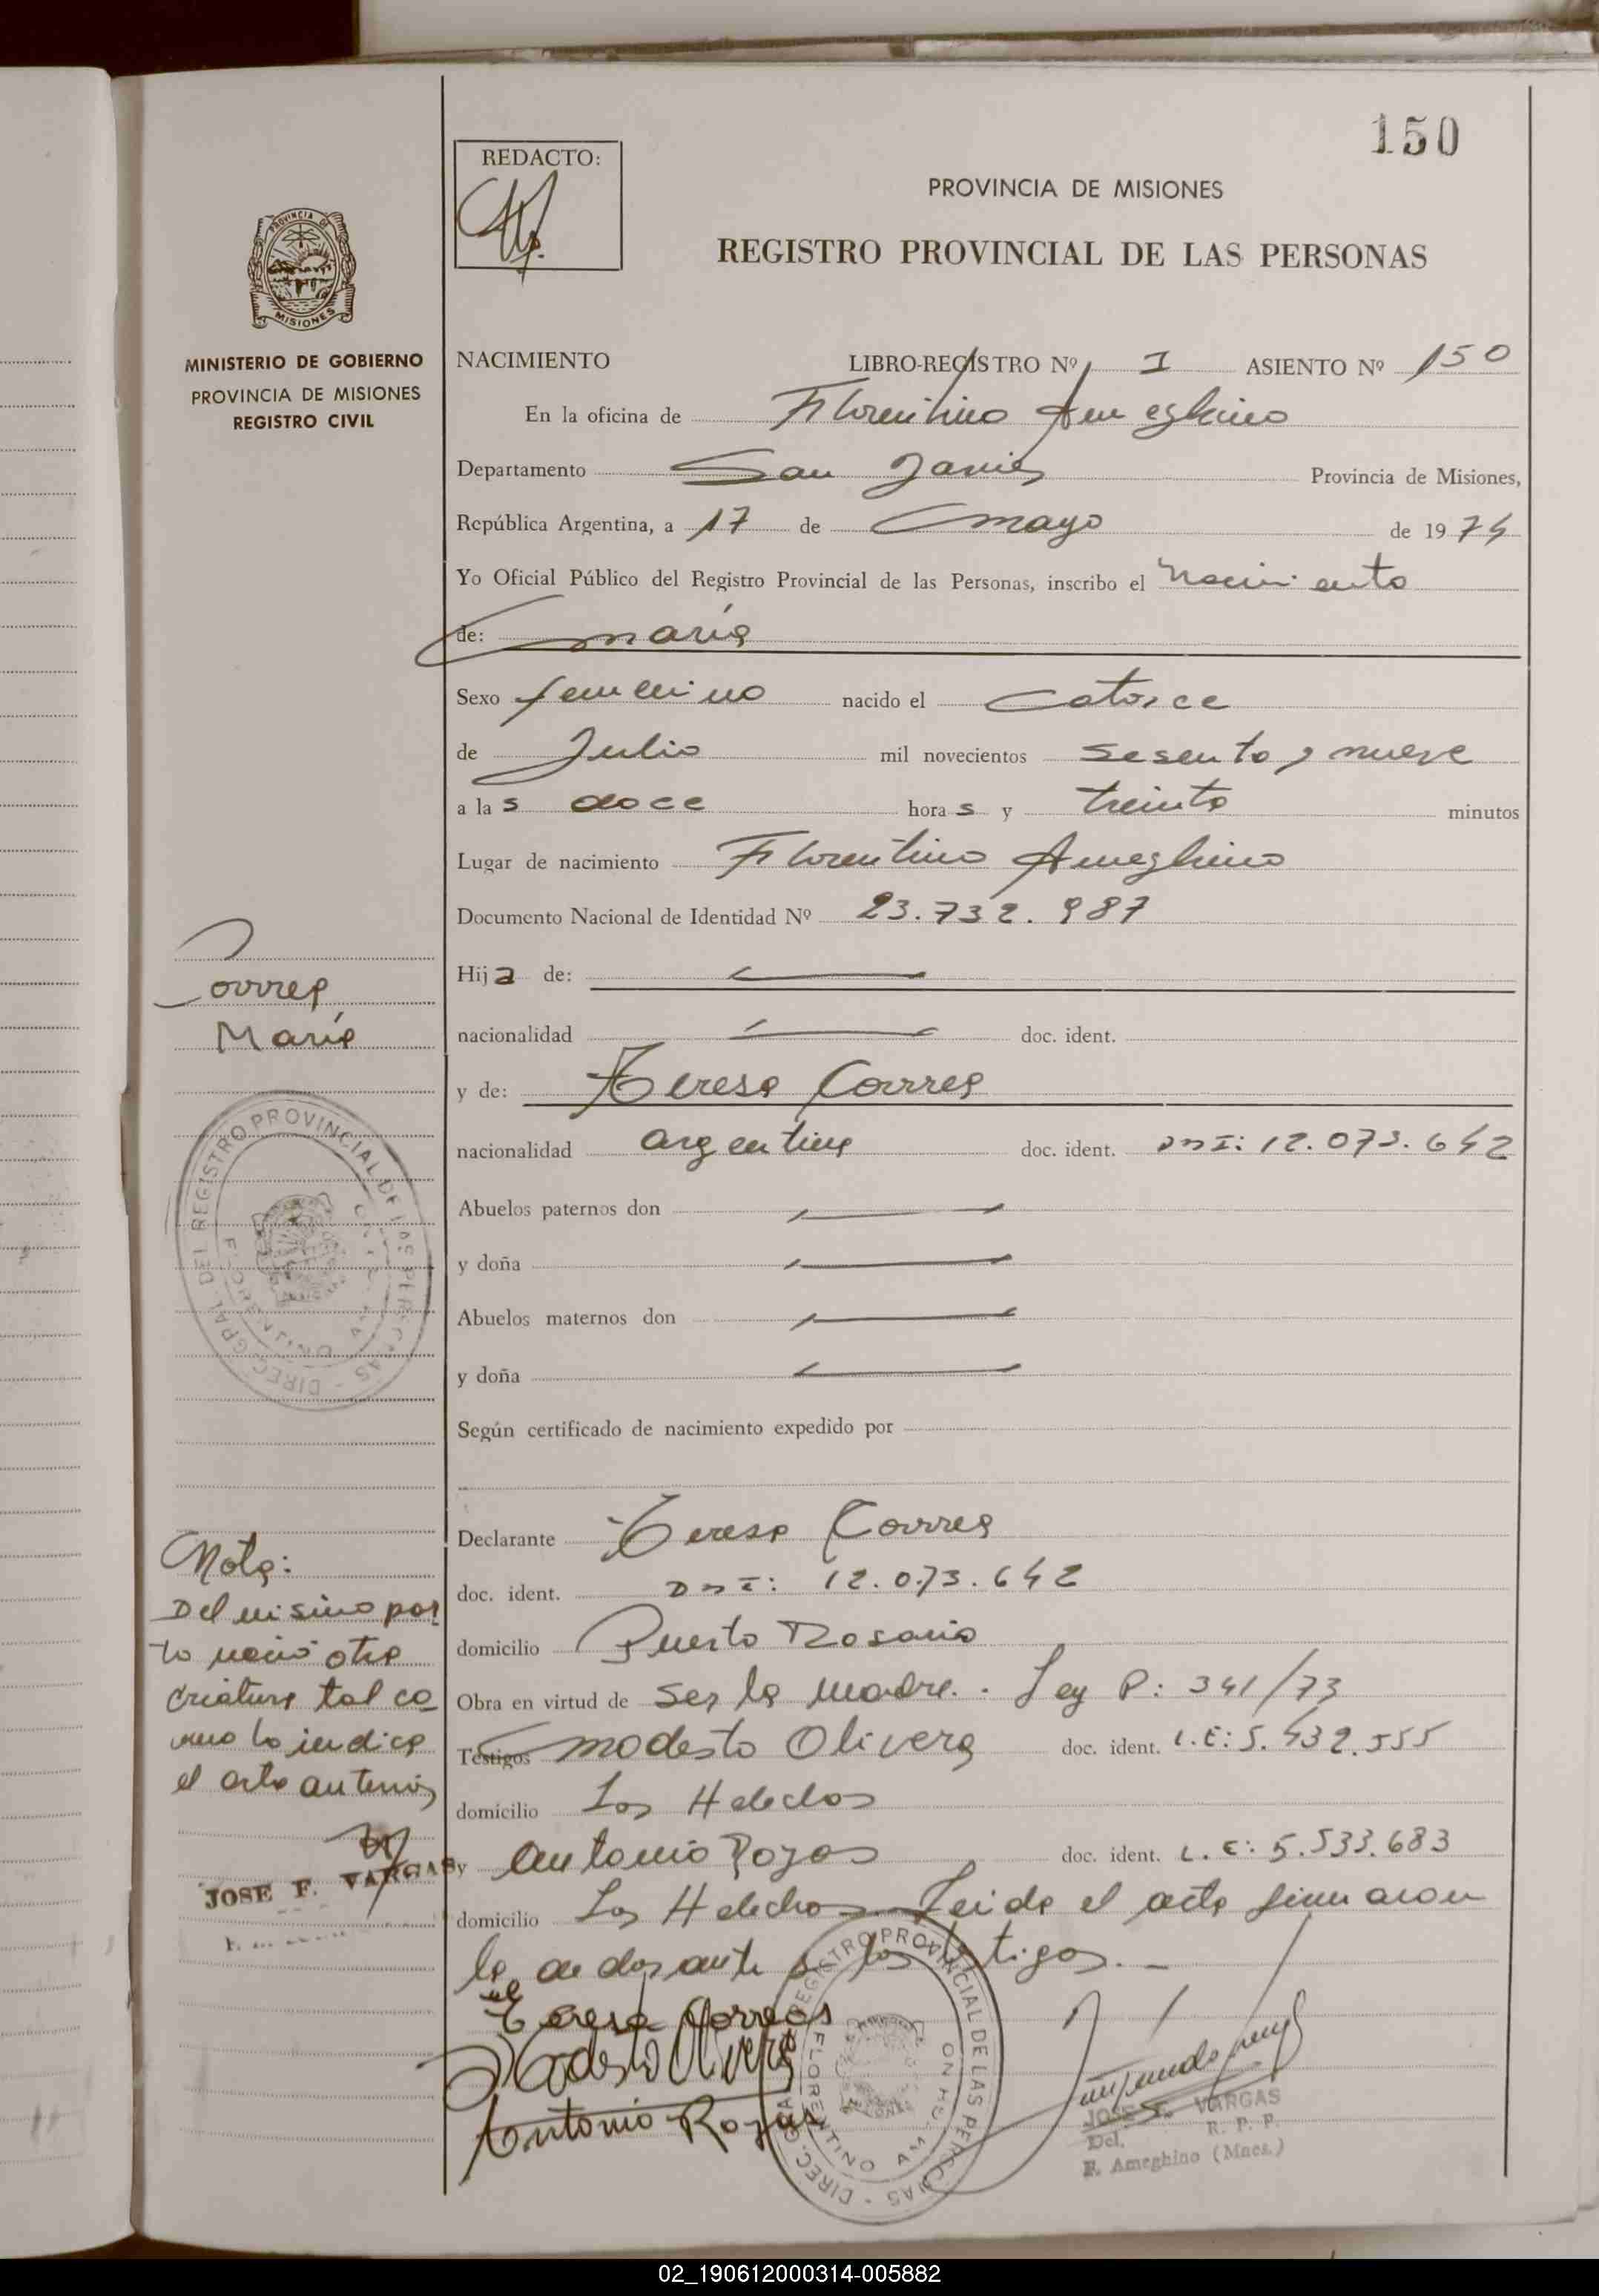 150
REDACTO:
PROVINCIA DE MISIONES
REGISTRO PROVINCIAL DE LAS PERSONAS
PROVINCIA DE
MISIONES
MINISTERIO DE GOBIERNO
PROVINCIA DE MISIONES
REGISTRO CIVIL
NACIMIENTO LIBRO-REGISTRO Nº 1 ASIENTO Nº 150
En la oficina de Florentino Ameghino
Departamento San Javier Provincia de Misiones,
República Argentina, a 17 de mayo de 1974
Yo Oficial Público del Registro Provincial de las Personas, inscribo el Nacimiento
de: María
Sexo femenino nacido el catorce
de Julio mil novecientos sesenta y nueve
a las doce horas y treinta minutos
Lugar de nacimiento Florentino Ameghino
Documento Nacional de Identidad Nº 23.732.987
Hija de:
nacionalidad doc. ident.
y de: Teresa Correa
nacionalidad argentina doc. ident. DNI: 12.073.642
Abuelos paternos don
y doña
Abuelos maternos don
y doña
Según certificado de nacimiento expedido por
Declarante Teresa Correa
doc. ident. DNI: 12.073.642
domicilio Puerto Rosario
Obra en virtud de ser la madre. - Ley P: 341/73
Testigos Modesto Olivera doc. ident. L.E: 5.432.555
domicilio Los Helechos
y Antonio Rojas doc. ident. L.E: 5.533.683
domicilio Los Helechos. Leida el acta firmaron
los testigos. -
Teresa Correa
Modesto Olivera
Antonio Rojas
JOSE F. VARGAS
Del. R. P. P.
F. Ameghino (Mnes.)
DIREC. GRAL. DEL REGISTRO PROVINCIAL DE LAS PERSONAS
FLORENTINO AMEGHINO
Correa
María
DIREC. GRAL. DEL REGISTRO PROVINCIAL DE LAS PERSONAS
Nota:
Del mismo par
to nació otra
criatura tal co
mo lo indica
el acta anterior
JOSE F. VARGAS
02_190612000314-005882